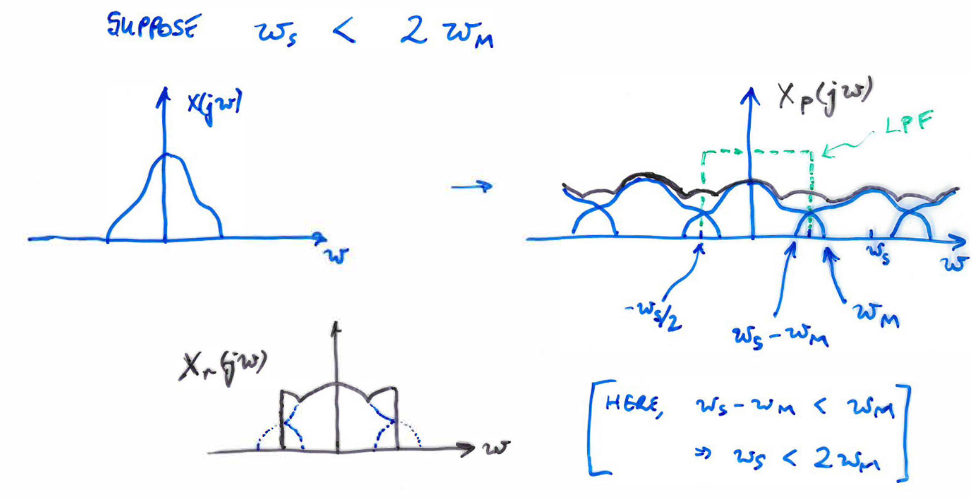 SUPPOSE ws < 2 wM
X(jw)
Xp(jw)
LPF
w
ws
w
-ws/2
ws-wM
wM
Xr(jw)
w
[HERE, ws-wM < wM
⇒ ws < 2wM]